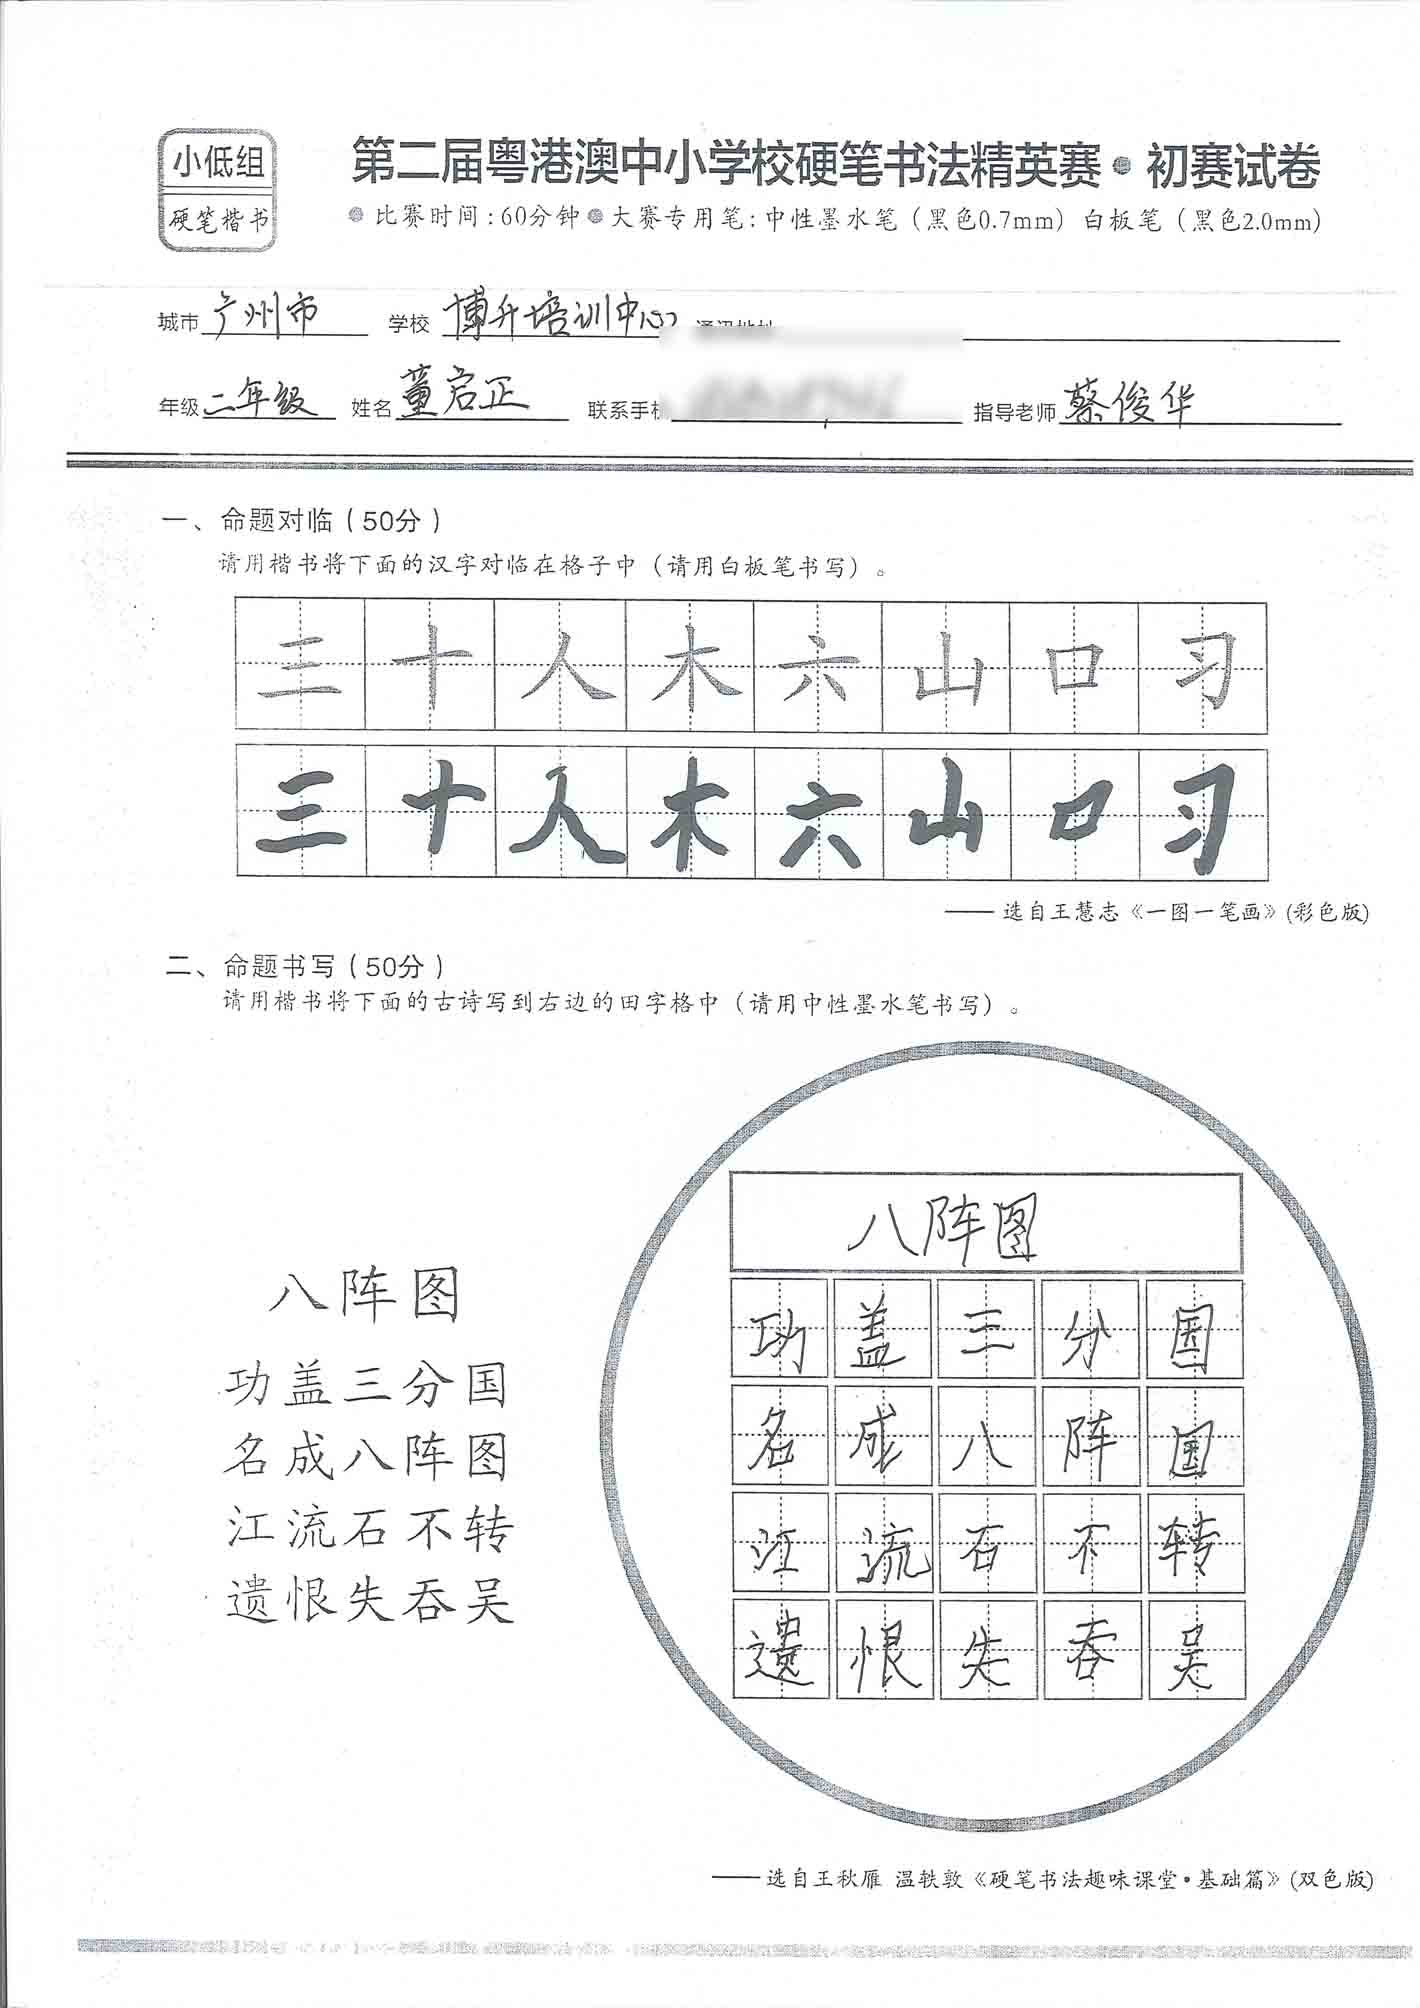 小低组
硬笔楷书
第二届粤港澳中小学校硬笔书法精英赛·初赛试卷
比赛时间:60分钟 大赛专用笔:中性墨水笔(黑色0.7mm) 白板笔(黑色2.0mm)
城市 广州市 学校 博升培训中心 通讯地址
年级 二年级 姓名 董启正 联系手机 指导老师 蔡俊华
一、命题对临(50分)
请用楷书将下面的汉字对临在格子中(请用白板笔书写)。
三十人木六山口习
三十人木六山口习
——选自王慧志《一图一笔画》(彩色版)
二、命题书写(50分)
请用楷书将下面的古诗写到右边的田字格中(请用中性墨水笔书写)。
八阵图
功盖三分国
名成八阵图
江流石不转
遗恨失吞吴
八阵图
功盖三分国
名成八阵国
江流石不转
遗恨失吞吴
——选自王秋雁 温轶敦《硬笔书法趣味课堂·基础篇》(双色版)